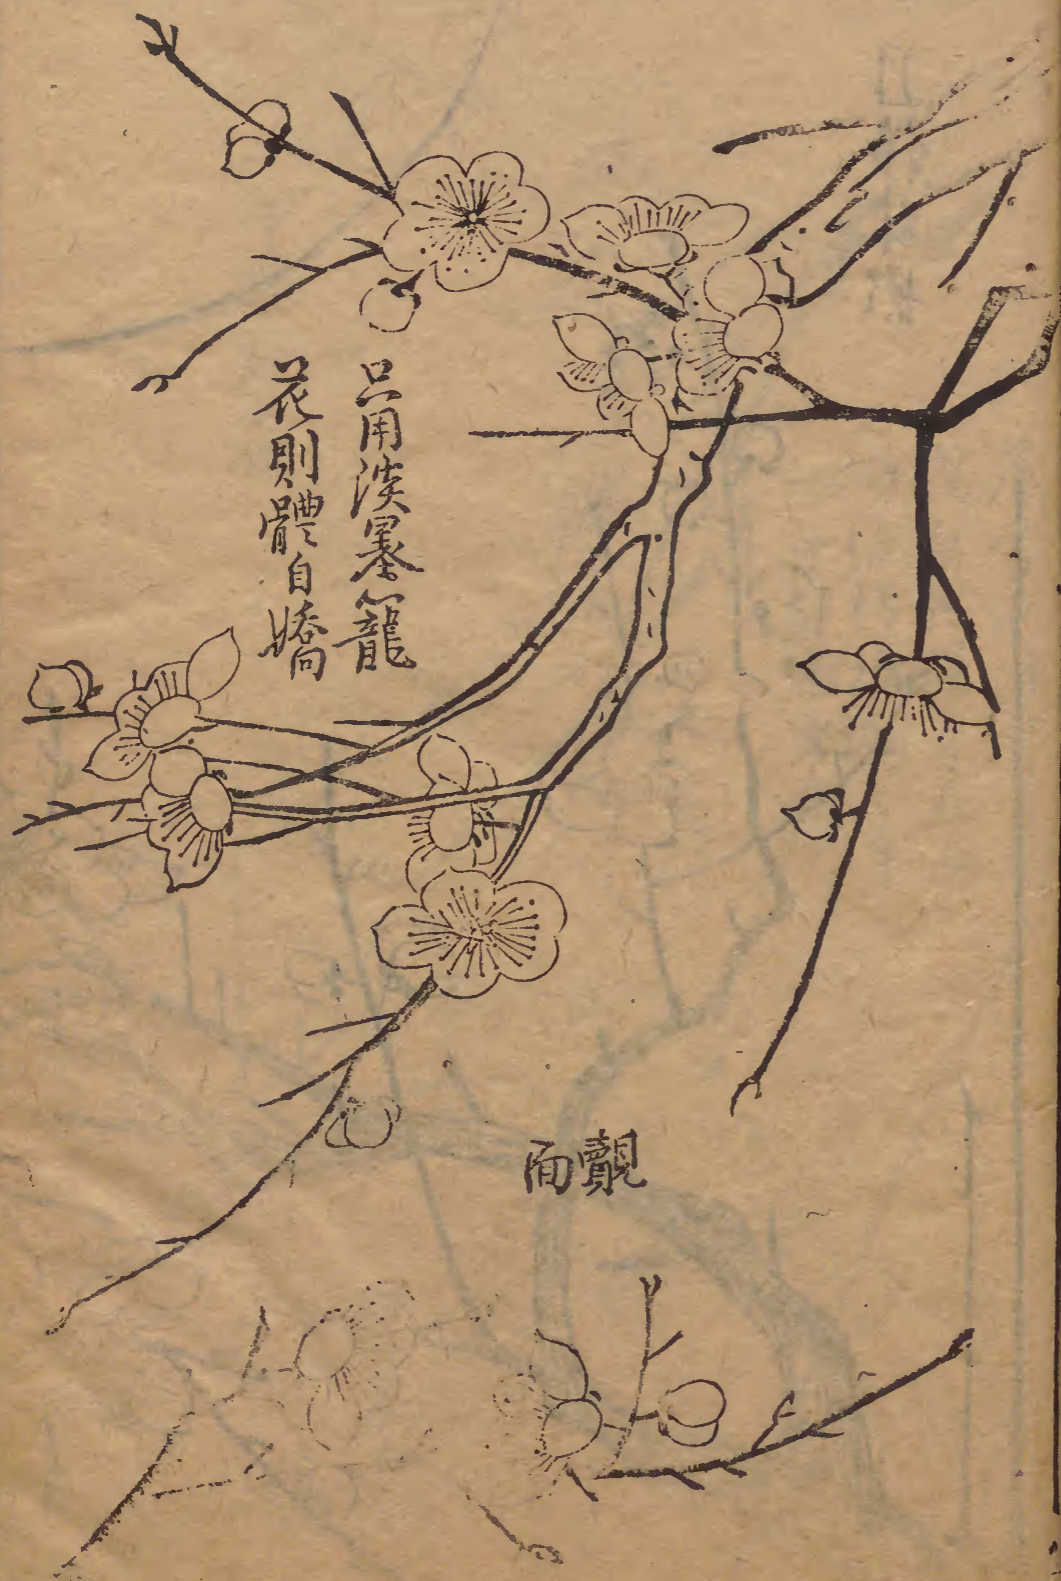 只用淡墨籠
花則體自嬌
覿面